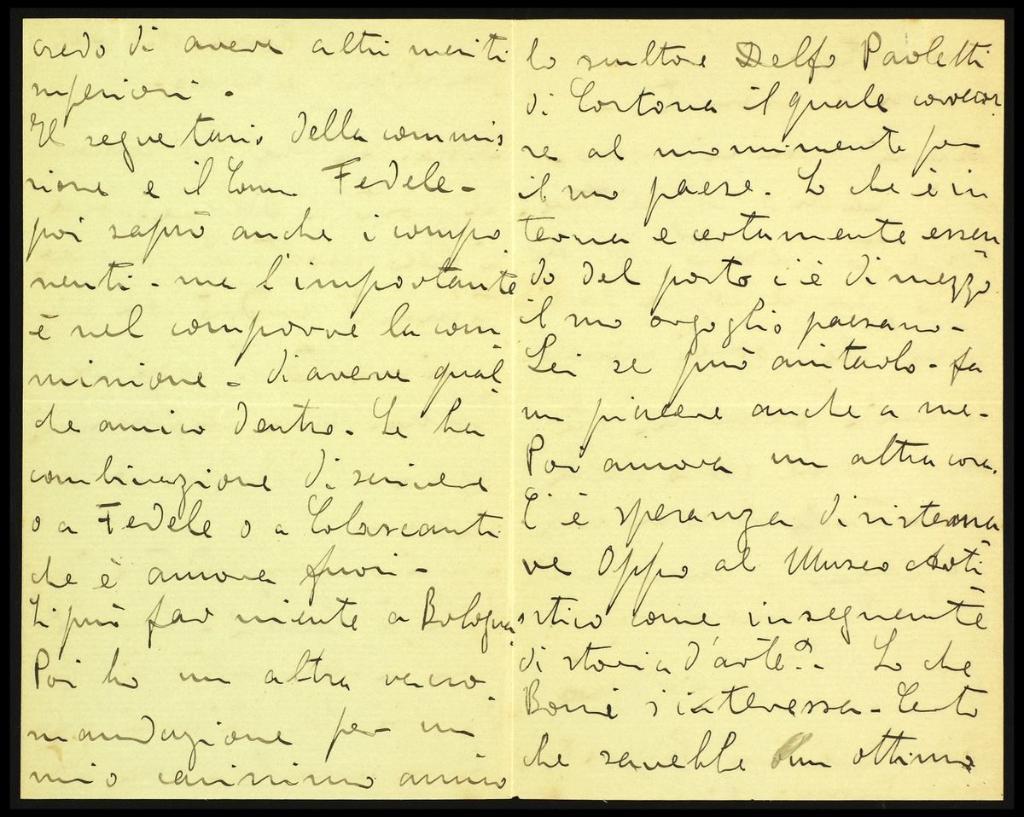 credo di avere altri meriti
superiori -
Il segretario della commis
sione e il Comm Fedele -
poi saprò anche i compo
nenti - ma l'importante
è nel comporre la com
missione - di avere qual
che amico dentro - Se ha
combinazione di scrivere
o a Fedele o a Colasanti
che è ancora fuori -
Si può far niente a Bologna
Poi ho un altra racco
mandazione per un
mio carissimo amico
lo scultore Delfo Paoletti
di Cortona il quale concor
re al monumento per
il suo paese. So che è in
terna e certamente essen
do del posto c'è di mezzo
il suo orgoglio paesano -
Lei se può aiutarlo - fa
un piacere anche a me -
Poi ancora un altra cosa.
C'è speranza di sistema
re Oppo al Museo Arti
stico come insegnante
di storia d'arte? - So che
s'interessa - Certo
che sarebbe un ottimo